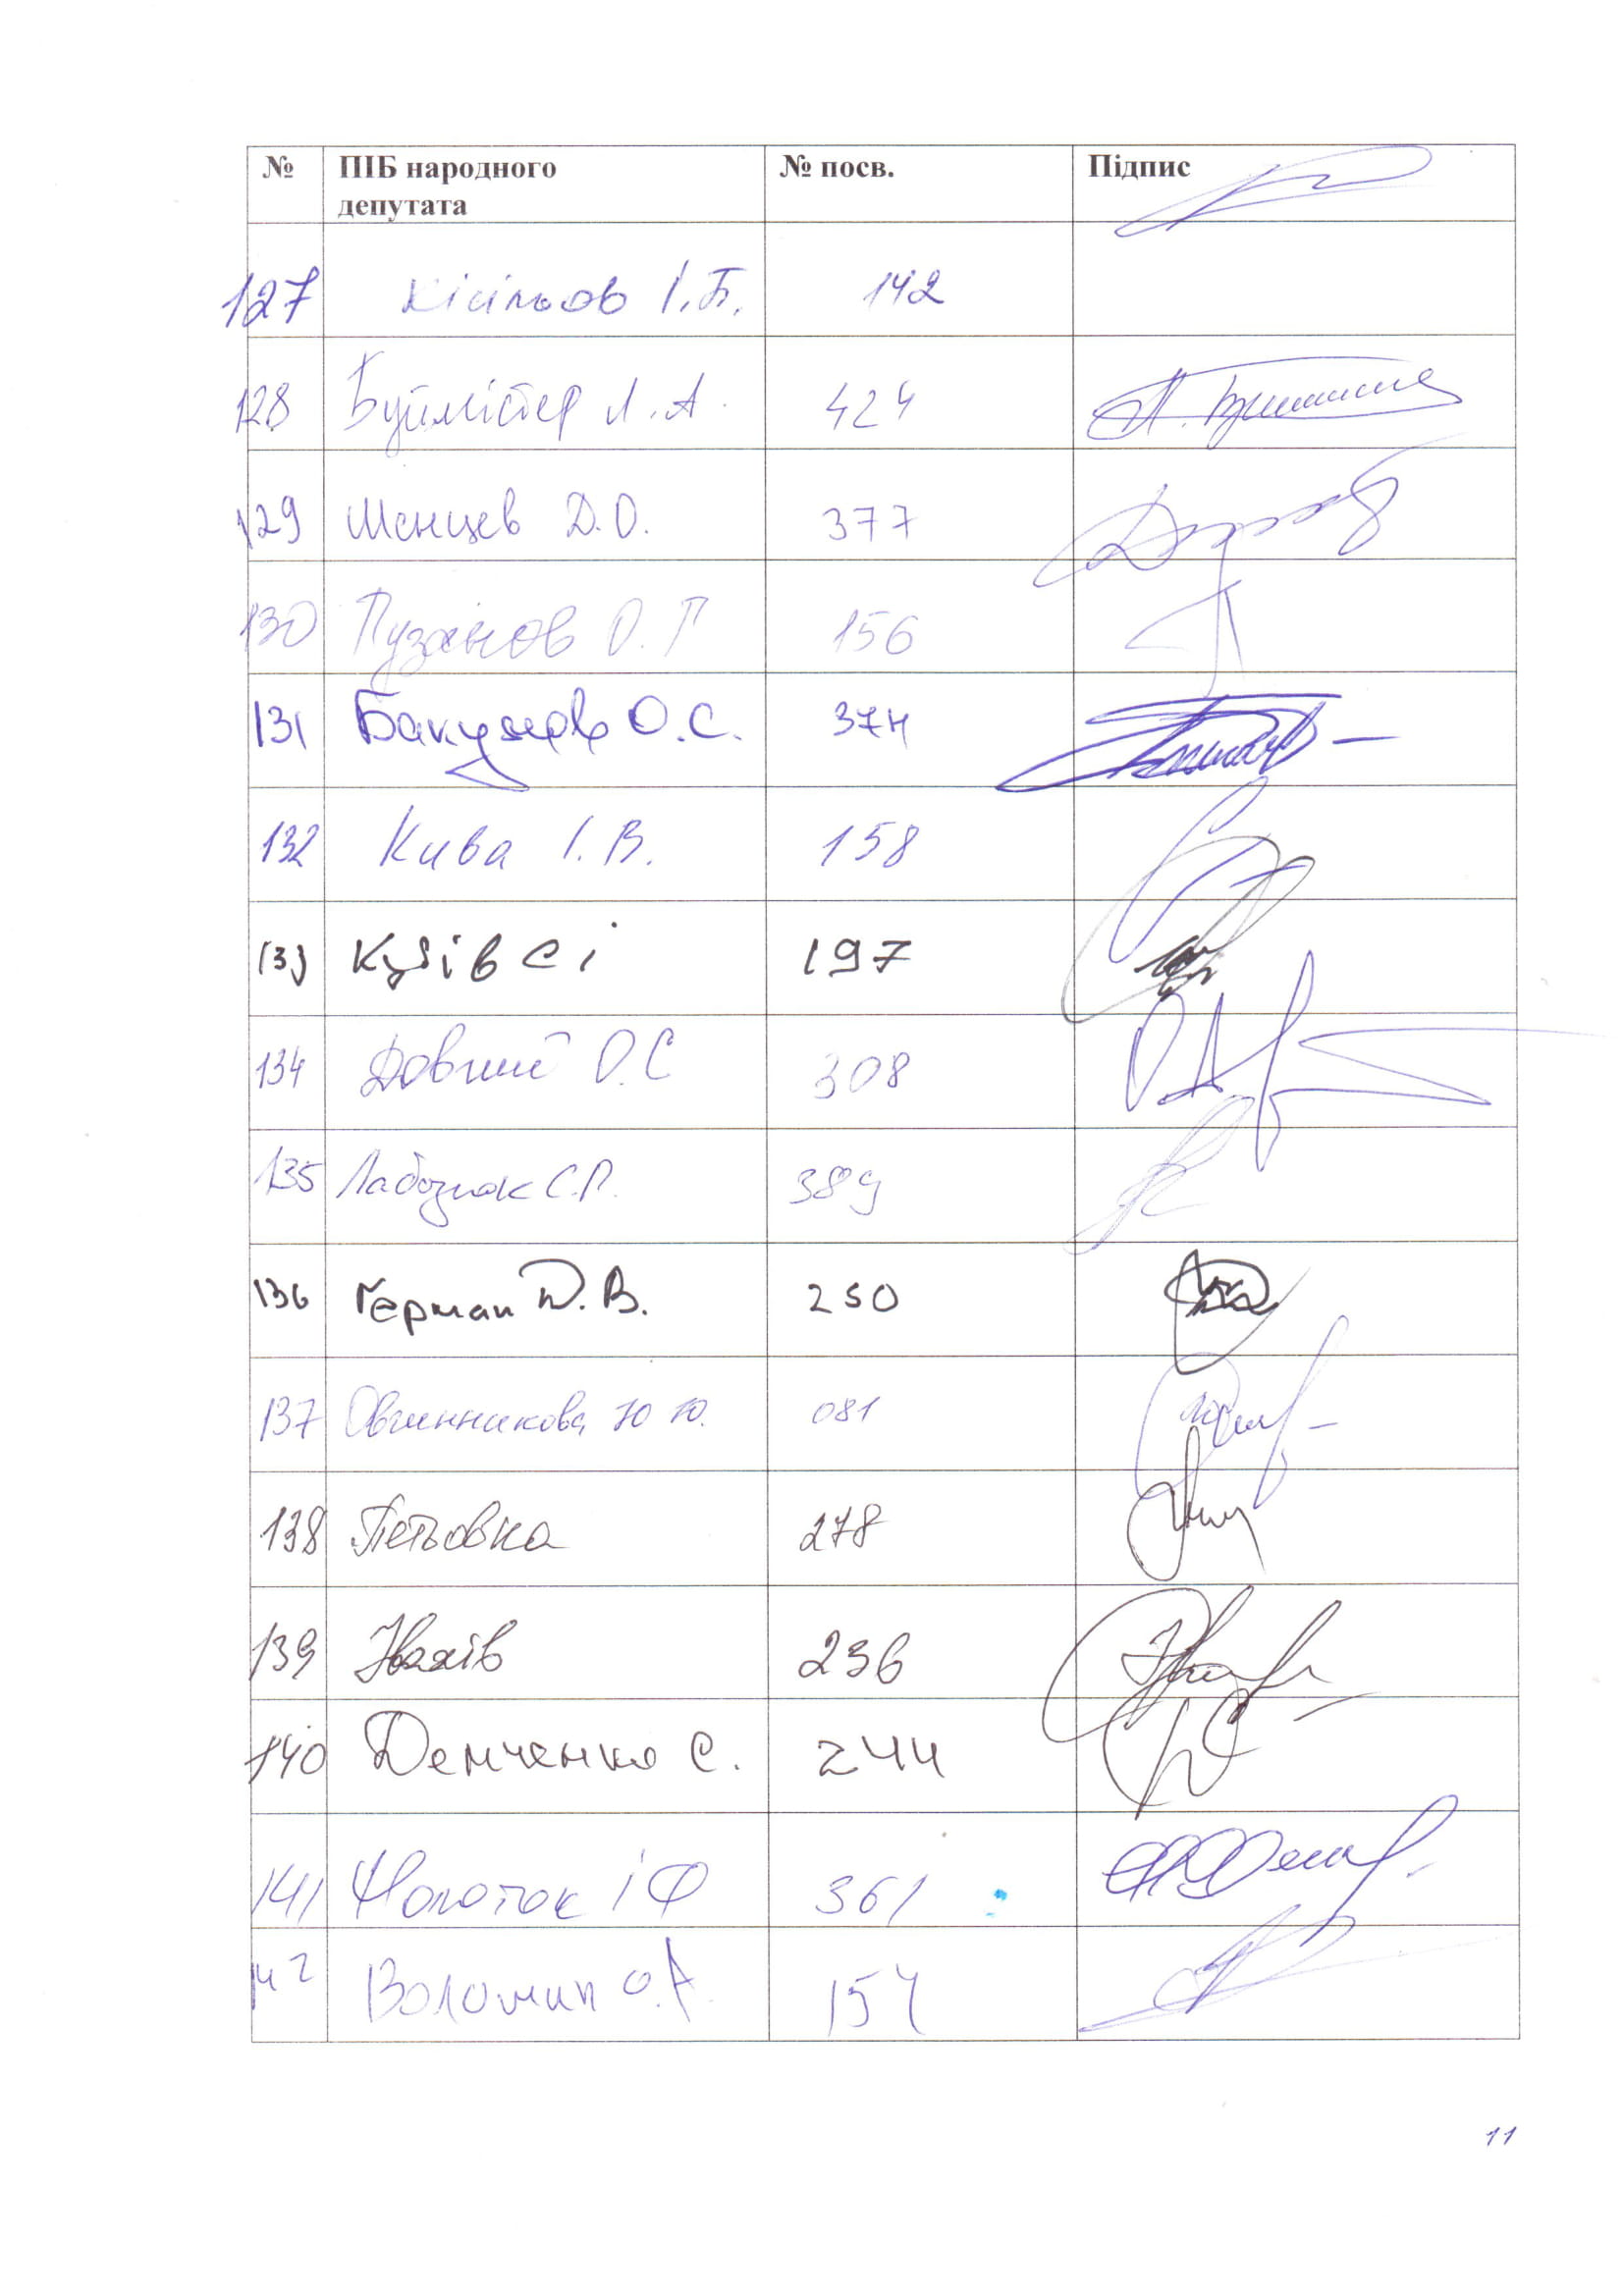 № ПІБ народного депутата № посв. Підпис
127 Кісільов І.Б. 142
128 Буймістер Л.А. 424
129 Шенцев Д.О. 377
130 Пузанов О.Г 156
131 Бакумов О.С. 374
132 Кива І.В. 158
133 Кузів С І 197
134 Довгий О.С 308
135 Лабазюк С.П. 389
136 Герман Д.В. 250
137 Овчинникова Ю Ю. 081
138 Петьовка 278
139 Івахів 236
140 Демченко С. 244
141 Молоток І Ф 361
142 Волошин О.А. 154
11